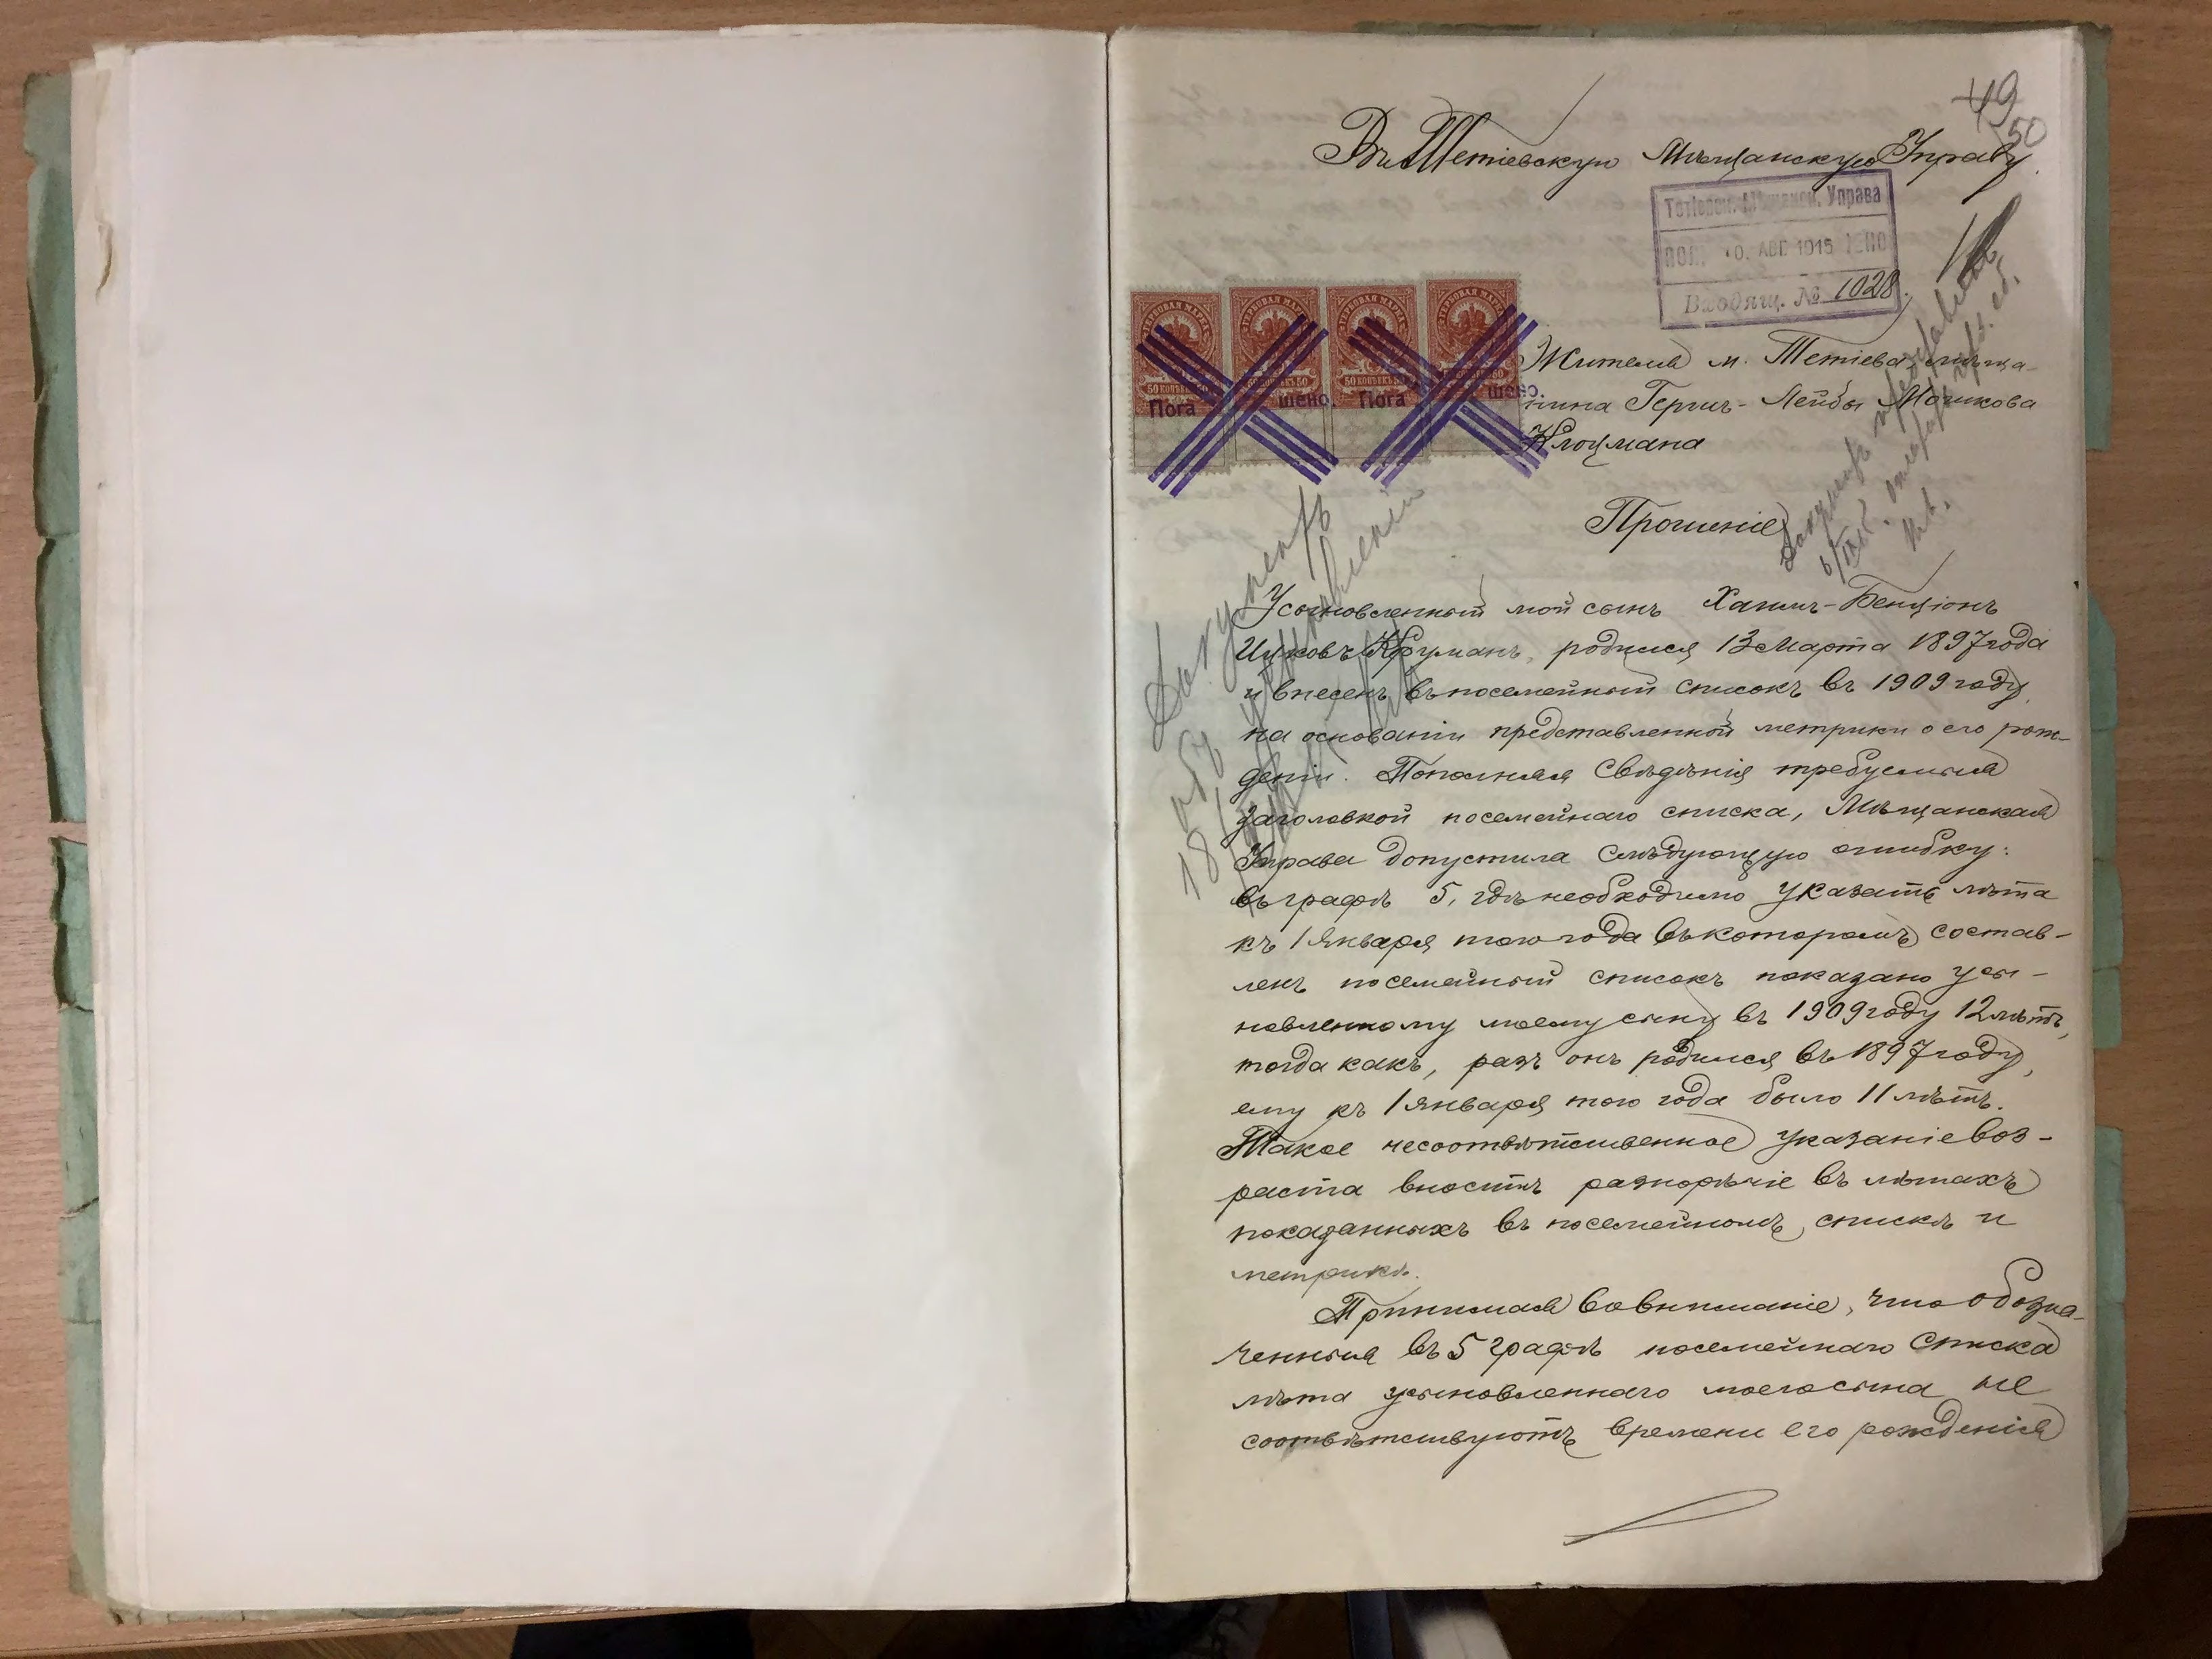 49
50
Въ Тетіевскую Мѣщанскую Управу.
Тетіевск. Мѣщанск. Управа
ПОЛУ 10. АВГ 1915 ЧЕНО
Входящ. № 1028.
ГЕРБОВАЯ МАРКА ГЕРБОВАЯ МАРКА ГЕРБОВАЯ МАРКА ГЕРБОВАЯ МАРКА
50 КОПѢЕКЪ 50 50 КОПѢЕКЪ 50 50 КОПѢЕКЪ 50 50 КОПѢЕКЪ 50
Погашено. Погашено.
Жителя м. Тетіева мѣща-
нина Гершъ-Лейбы Мошкова
Клоцмана
Прошеніе
Документъ
объ
Усыновленный мой сынъ Хаимъ-Бенціонъ
Ицковъ Куманъ, родился 13 Марта 1897 года
и внесенъ въ посемейный списокъ въ 1909 году
на основаніи представленной метрики о его рож-
деніи. Пополняя свѣдѣнія требуемыя
заголовкой посемейнаго списка, Мѣщанская
Управа допустила слѣдующую ошибку:
въ графѣ 5, гдѣ необходимо указать лѣта
къ 1 Января того года въ которомъ состав-
ленъ посемейный списокъ показано усы-
новленному моему сыну въ 1909 году 12 лѣтъ,
тогда какъ, разъ онъ родился въ 1897 году,
ему къ 1 января того года было 11 лѣтъ.
Такое несоотвѣтственное указаніе воз-
раста вноситъ разнорѣчіе въ лѣтахъ
показанныхъ въ посемейномъ спискѣ и
метрикѣ.
Принимая во вниманіе, что обозна-
ченныя въ 5 графѣ посемейнаго списка
лѣта усыновленнаго моего сына не
соотвѣтствуютъ времени его рожденія